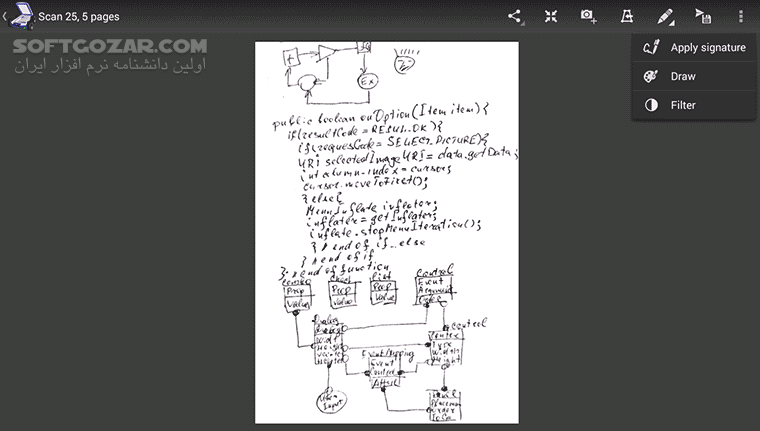 Scan 25, 5 pages
SOFTGOZAR.COM
اولین دانشنامه نرم افزار ایران
Apply signature
Draw
Filter
Ex
public boolean onOption(Item item){
if(resultCode = RESUL_OK){
if(requesCode = SELECT_PICTURE){
URI selectedImage URI = data.getData;
int column-index = cursor;
cursor.moveToFirst();
}else{
MenuInflate inflator;
inflater = getInflater;
inflate.stopMenuIteration();
} // end of if_else
} // end of if
}; // end of function
list
Control
Prop
Value
Prop
Value
Prop
Value
Event
Control
Event Mapping
Event
Control
User
Input